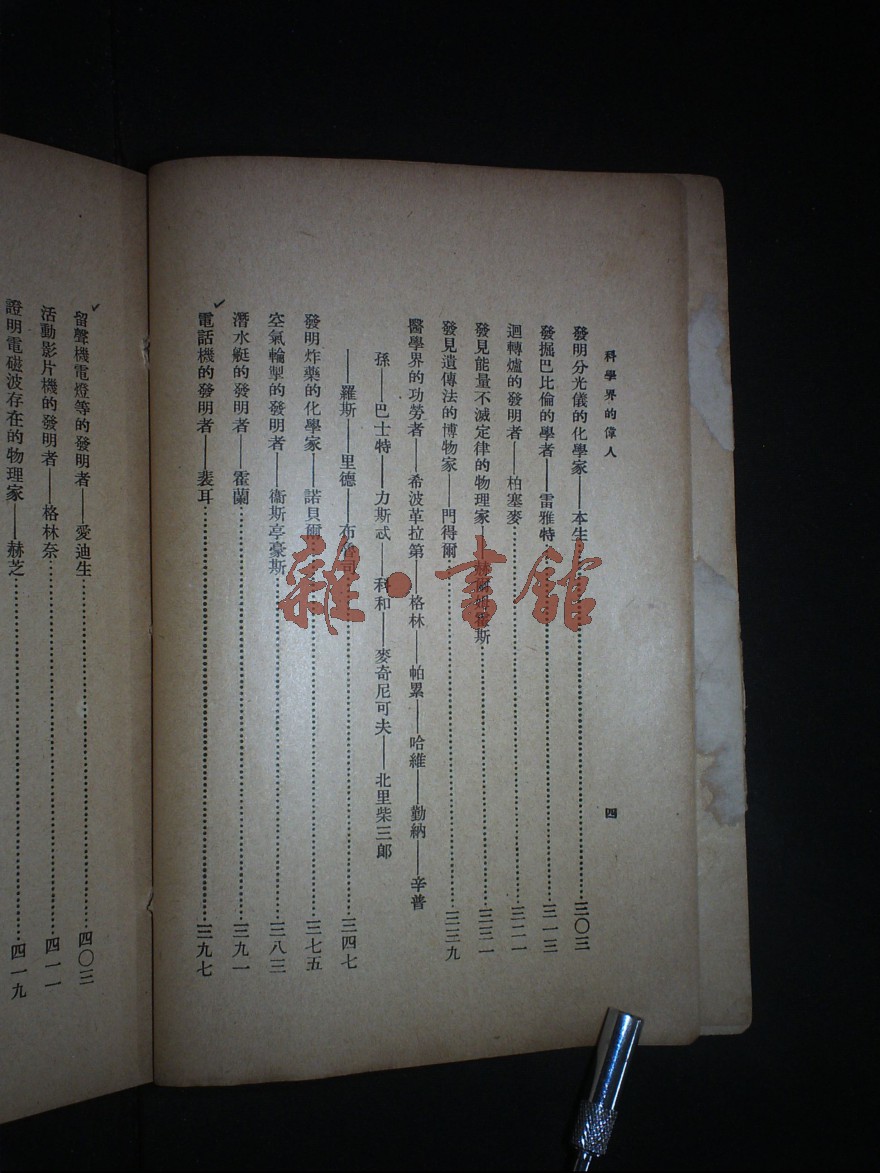 科學界的偉人
四
發明分光儀的化學家——本生……三〇三
發掘巴比倫的學者——雷雅特……三一三
迴轉爐的發明者——柏塞麥……三二一
發見能量不滅定律的物理家——赫爾姆霍斯……三三一
發見遺傳法的博物家——門得爾……三三九
醫學界的功勞者——希波革拉第——格林——帕累——哈維——勤納——辛普
孫——巴士特——力斯忒——科和——麥奇尼可夫——北里柴三郎
——羅斯——里德——布魯司……三四七
發明炸藥的化學家——諾貝爾……三七五
空氣輪掣的發明者——衞斯亭豪斯……三八三
潛水艇的發明者——霍蘭……三九一
電話機的發明者——裴耳……三九七
留聲機電燈等的發明者——愛迪生……四〇三
活動影片機的發明者——格林奈……四一一
證明電磁波存在的物理家——赫芝……四一九
雜·書館